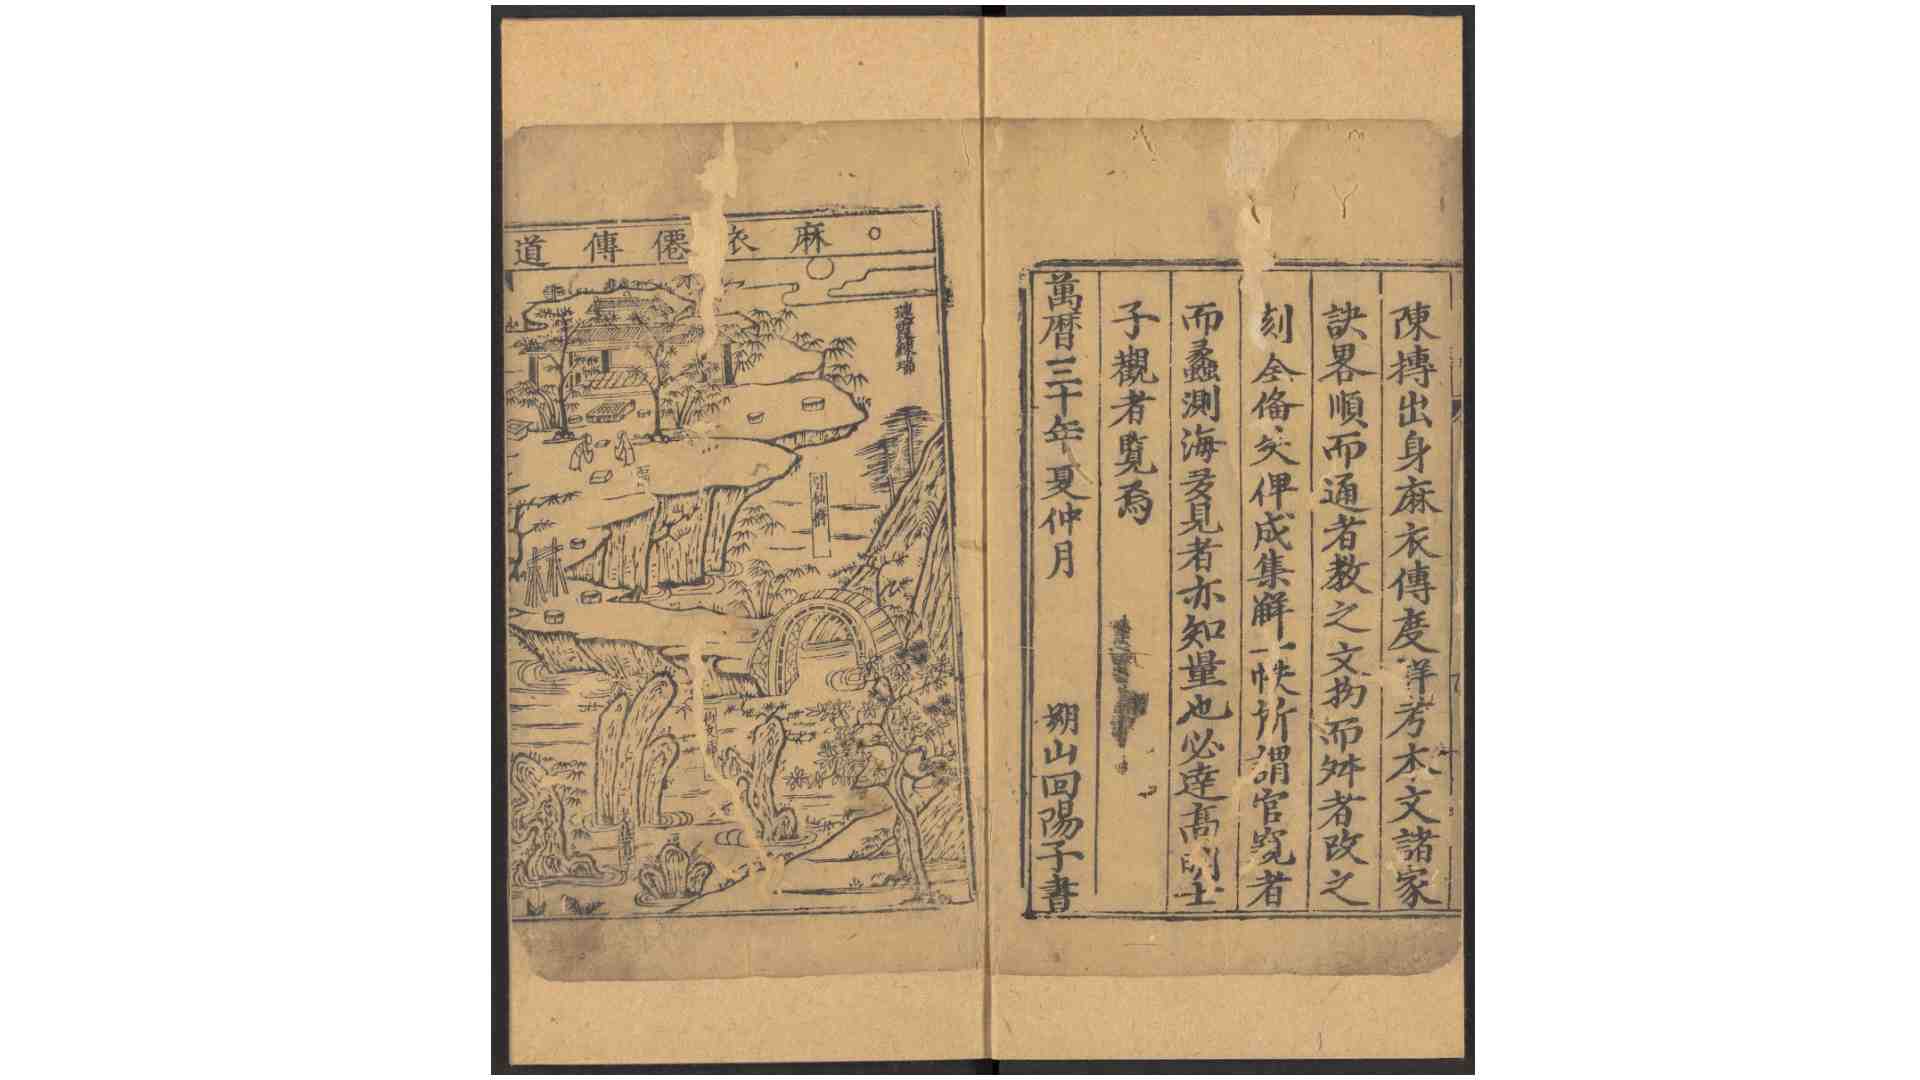 陳摶出身麻衣傳度詳考本文諸家
訣畧順而通者教之文拗而舛者改之
刻全備矣俾成集解一帙所謂官窺者
而蠡測海爻見者亦知量也必達髙明士
子觀者覽焉
萬曆三十年夏仲月 朔山回陽子書
麻衣僊傳道